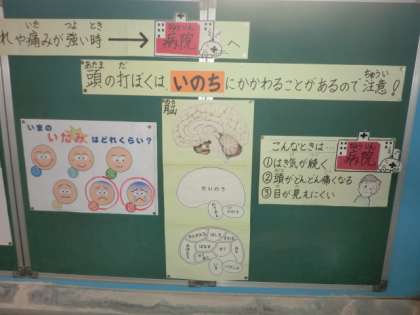 れや痛みが強い時 → 病院 へ
頭の打ぼくは いのち にかかわることがあるので注意!
脳
いまの いたみ はどれくらい?
だいのう
こんなときは… 病院
①はき気が続く
②頭がどんどん痛くなる
③目が見えにくい